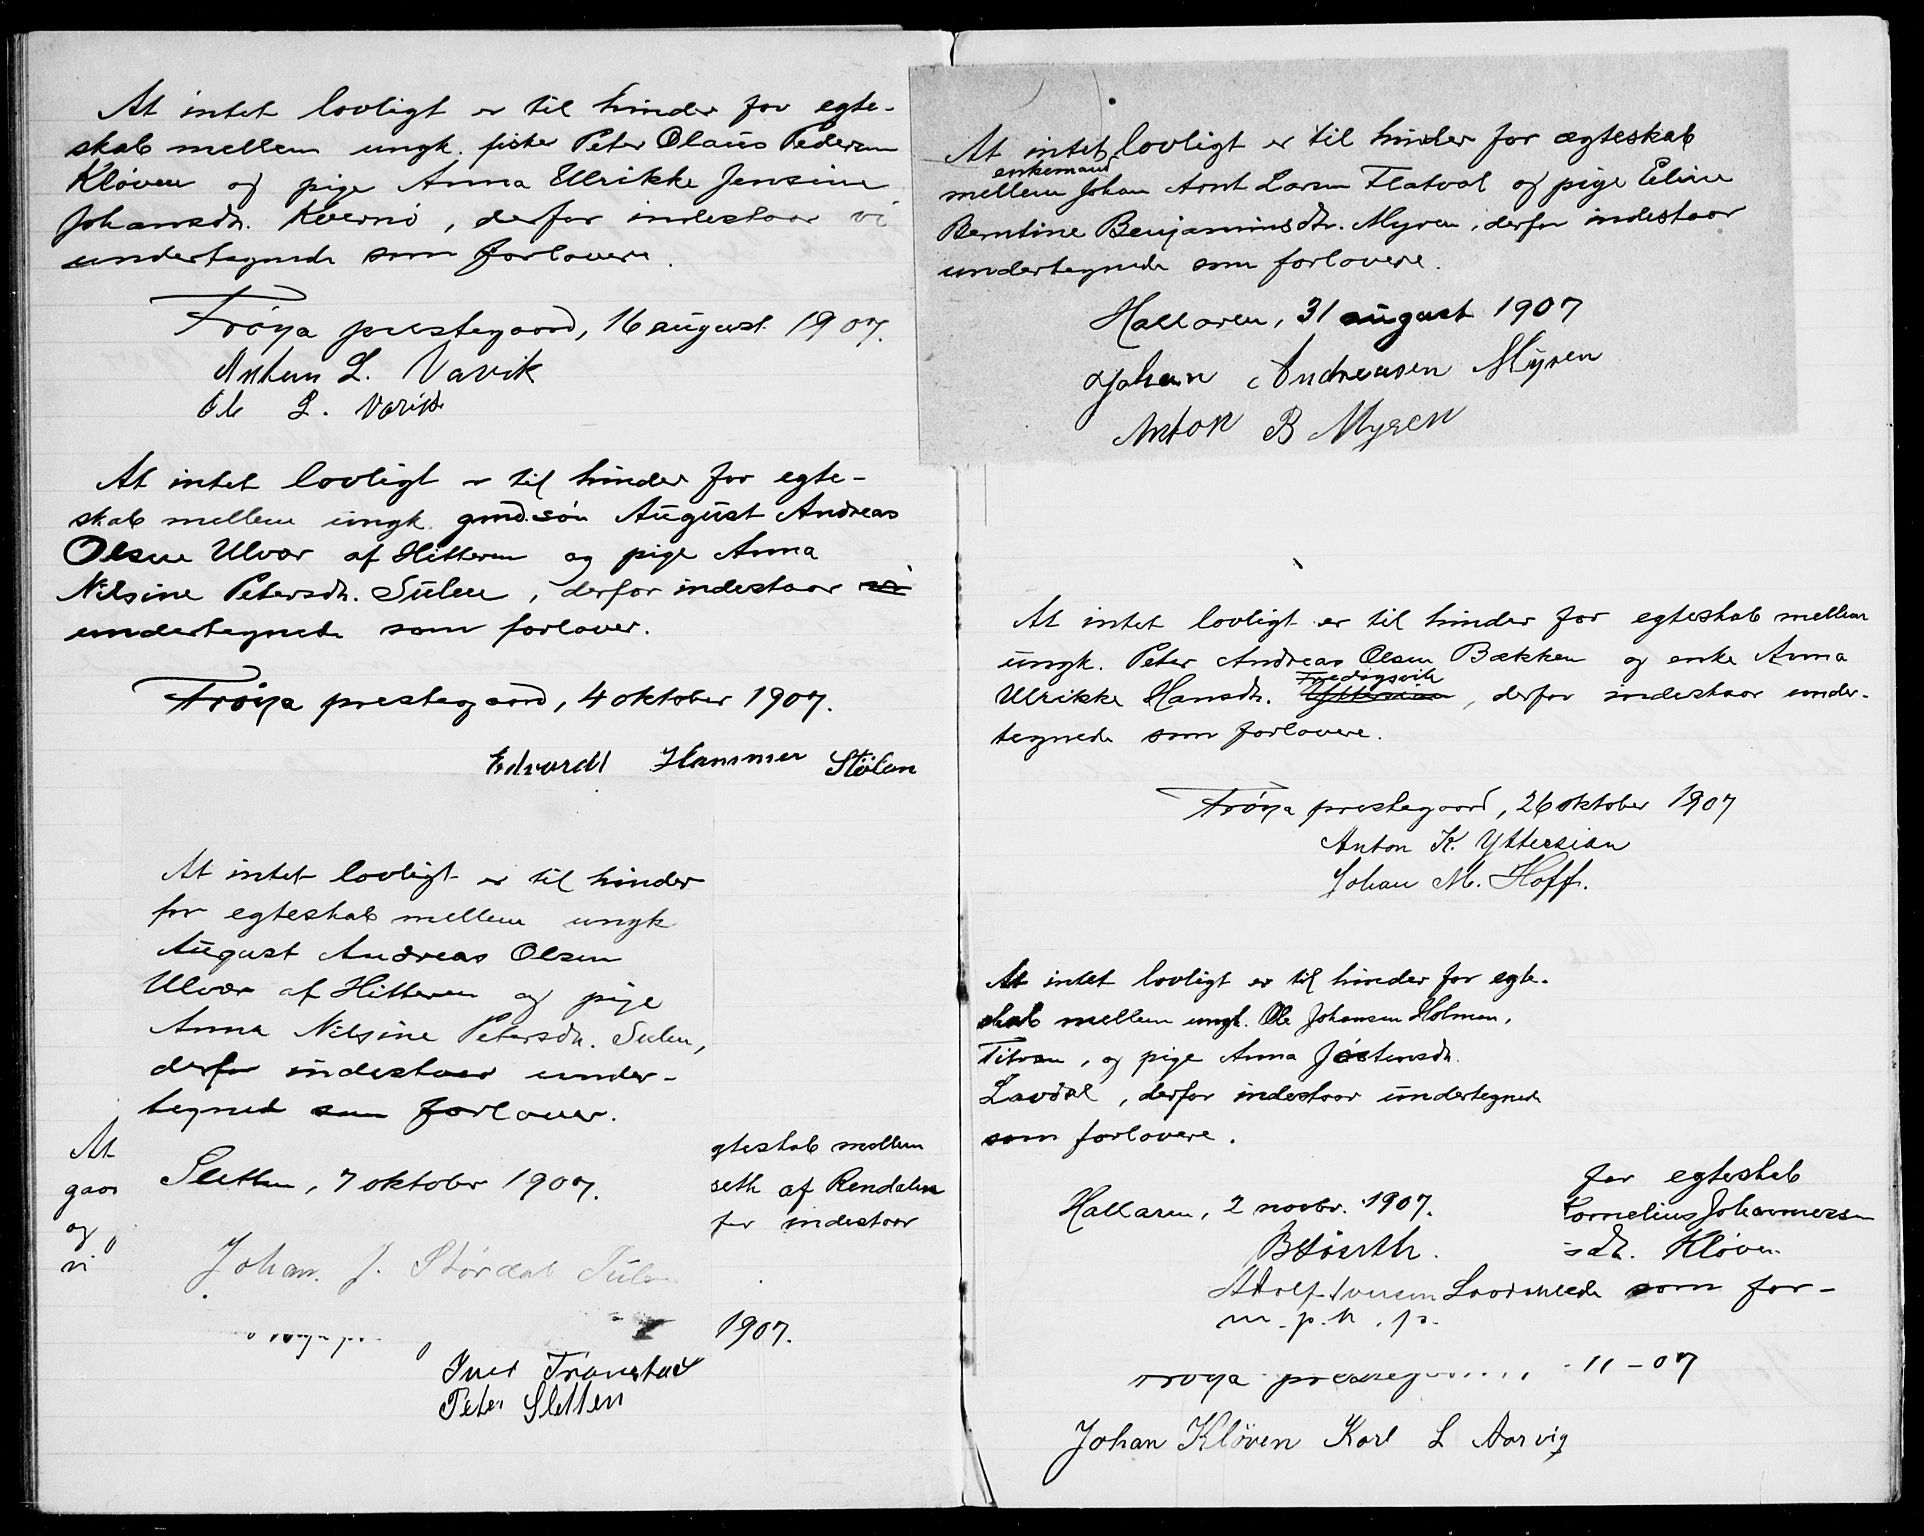 At intet lovligt er til hinder for egte-
skab mellem ungk. fisker Peter Olaus Pedersen
Kløven og pige Anna Ulrikke Jensine
Johansdtr. Kvernø, derfor indestaar vi
undertegnede som forlovere.
Frøya prestegaard, 16 august 1907.
L. Vavik
L. Vavik
At intet lovligt er til hinder for egte-
skab mellem ungk. gmd.søn August Andreas
Olsen Ulvær af Hitteren og pige Anna
Nilsine Petersdtr. Sulen, derfor indestaar vi
undertegnede som forlover.
Frøya prestegaard, 4 oktober 1907.
Edvardt Hammer Stølan
At intet lovligt er til hinder
for egteskab mellem ungk
August Andreas Olsen
Ulvær af Hitteren og pige
Anna Nilsine Petersdtr. Sulen,
derfor indestaar under-
tegnede som forlover.
Sletten, 7 oktober 1907.
Johan J. Størdal Sulen
At
gaar
og
vi
gteskab mellem
seth af Rendalen
for indestaar
1907.
Iver Tranestad
Peter Sletten
At intet lovligt er til hinder for ægteskab
enkemand
mellem Johan Arnt Larsen Flatval og pige Eline
Berntine Benjaminsdtr. Myren, derfor indestaar
undertegnede som forlovere.
Hallaren, 31 august 1907
Johan Andreasen Myren
Anton B Myren
At intet lovligt er til hinder for egteskab mellem
ungk. Peter Andreas Olsen Bækken og enke Anna
Fredagsvik
Ulrikke Hansdtr. Yttersian, derfor indestaar under-
tegnede som forlovere.
Frøya prestegaard, 26 oktober 1907
Anton K. Yttersian
Johan M. Hoff.
At intet lovligt er til hinder for egte-
skab mellem ungk. Ole Johansen Holmen,
Titran, og pige Anna Jostensdtr.
Lavdal, derfor indestaar undertegnede
som forlovere.
Hallaren, 2 novbr. 1907.
Adolf Iversen
m. p. p.
for egteskab
Kornelius Johannessen
sdtr. Kløven
som for-
Frøya -11-07
Johan Kløven Karl L Aarvig